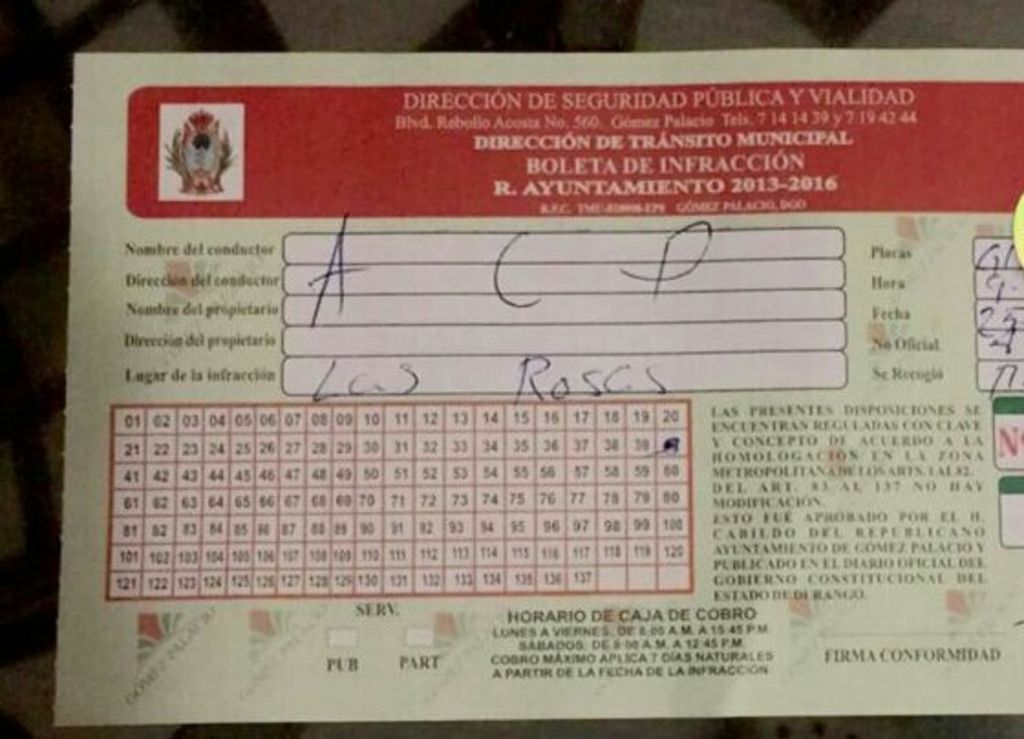 DIRECCIÓN DE SEGURIDAD PÚBLICA Y VIALIDAD
Blvd. Rebollo Acosta No. 560. Gómez Palacio Tels. 7 14 14 39 y 7 19 42 44
DIRECCIÓN DE TRÁNSITO MUNICIPAL
BOLETA DE INFRACCIÓN
R. AYUNTAMIENTO 2013-2016
R.F.C. GÓMEZ PALACIO, DGO
Nombre del conductor
Dirección del conductor
Nombre del propietario
Dirección del propietario
A C P
Lugar de la infracción Las Rosas
Placas
Hora
Fecha
No Oficial
Se Recogió
01 02 03 04 05 06 07 08 09 10 11 12 13 14 15 16 17 18 19 20
21 22 23 24 25 26 27 28 29 30 31 32 33 34 35 36 37 38 39
41 42 43 44 45 46 47 48 49 50 51 52 53 54 55 56 57 58 59 60
61 62 63 64 65 66 67 68 69 70 71 72 73 74 75 76 77 78 79 80
81 82 83 84 85 86 87 88 89 90 91 92 93 94 95 96 97 98 99 100
101 102 103 104 105 106 107 108 109 110 111 112 113 114 115 116 117 118 119 120
121 122 123 124 125 126 127 128 129 130 131 132 133 134 135 136 137
LAS PRESENTES DISPOSICIONES SE
ENCUENTRAN REGULADAS CON CLAVE
Y CONCEPTO DE ACUERDO A LA
HOMOLOGACIÓN EN LA ZONA
METROPOLITANA DE LOS ARTS. 1 AL 82.
DEL ART. 83 AL 137 NO HAY
MODIFICACIÓN.
ESTO FUE APROBADO POR EL H.
CABILDO DEL REPUBLICANO
AYUNTAMIENTO DE GÓMEZ PALACIO Y
PUBLICADO EN EL DIARIO OFICIAL DEL
GOBIERNO CONSTITUCIONAL DEL
ESTADO DE DURANGO.
SERV.
PUB PART
HORARIO DE CAJA DE COBRO
LUNES A VIERNES: DE 8:00 A.M. A 15:45 P.M.
SÁBADOS: DE 8:00 A.M. A 12:45 P.M.
COBRO MÁXIMO APLICA 7 DÍAS NATURALES
A PARTIR DE LA FECHA DE LA INFRACCIÓN
FIRMA CONFORMIDAD
GÓMEZ PALACIO